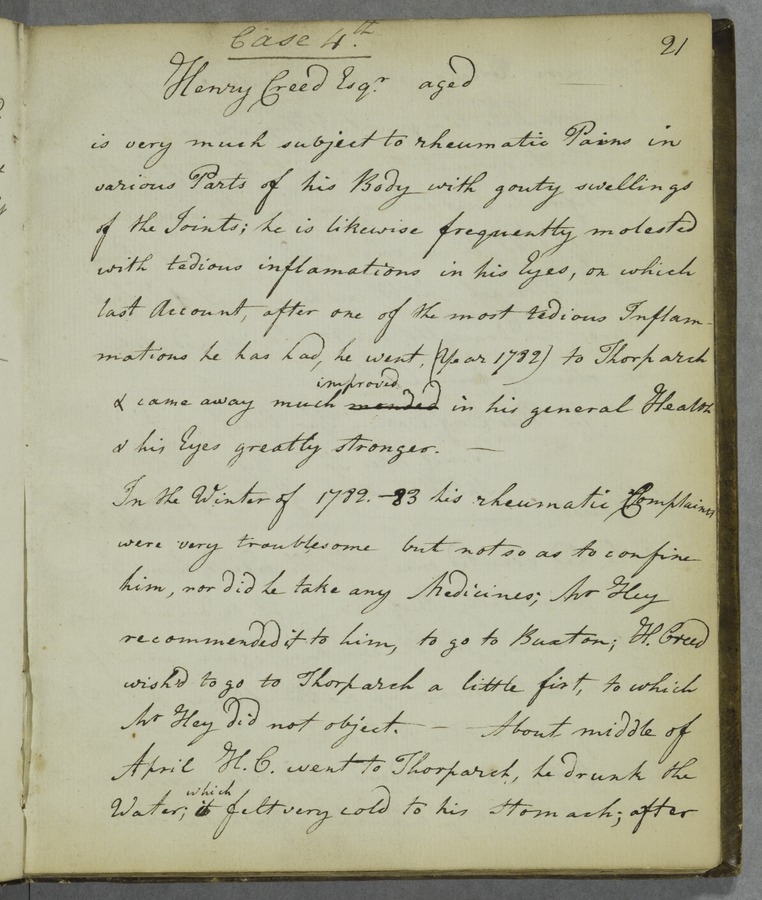 Case 4.th
21
Henry Creed Esqr. aged
is very much subject to rheumatic Pains in
various Parts of his Body with gouty swellings
of the Joints; he is likewise frequently molested
with tedious inflamations in his Eyes, on which
last Account, after one of the most tedious Inflam-
mations he has had, he went, (Year 1782) to Thorparch
improved
& came away much mended in his general Health
& his Eyes greatly stronger. —
In the Winter of 1782.-83 his rheumatic Complaints
were very troublesome but not so as to confine
him, nor did he take any Medicines; Mr Hey
recommended it to him, to go to Buxton; H. Creed
wish'd to go to Thorparch a little first, to which
Mr Hey did not object. — About middle of
April H.C. went to Thorparch, he drunk the
which
Water; it felt very cold to his Stomach; after